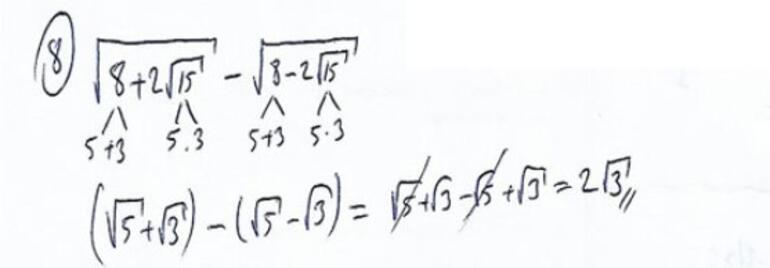 8 √(8+2√15) - √(8-2√15)
5+3 5.3 5+3 5.3
(√5+√3) - (√5-√3) = √5+√3-√5+√3 = 2√3